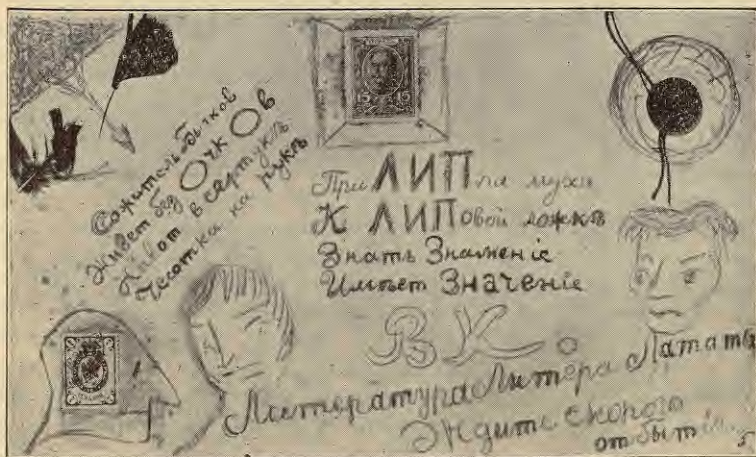 Сожитель бычков
Живет без ОчкОв
Живот в сертукѣ
Чесотка на рукѣ
15 15
ПриЛИПла муха
К ЛИПовой ложкѣ
Знать Значеніе
Имѣет Значеніе
В К.
Литература Литера
Ждите скораго
отбытія